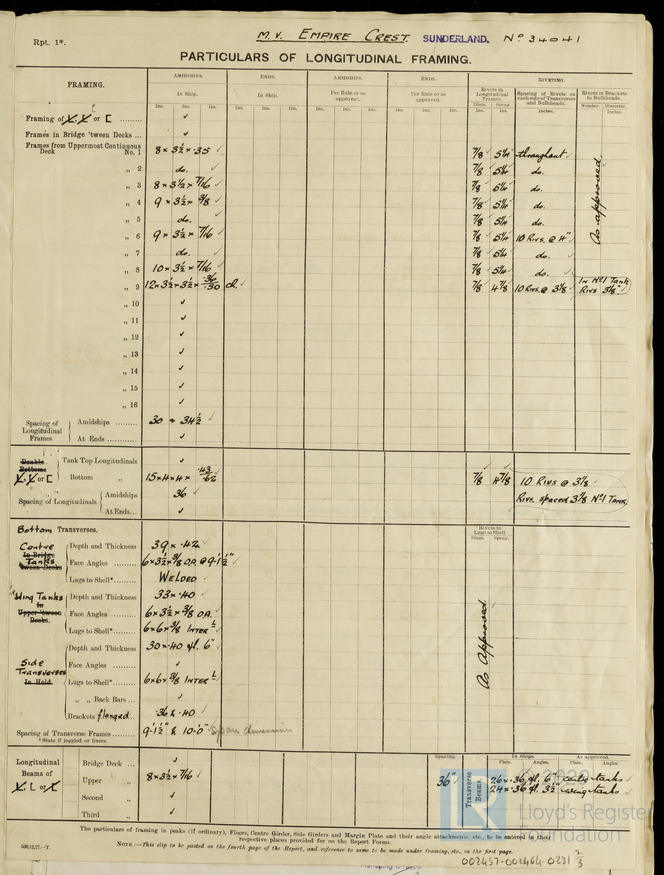 Rpt. 1*. M.V. EMPIRE CREST. SUNDERLAND. No 34041
PARTICULARS OF LONGITUDINAL FRAMING.
FRAMING. AMIDSHIPS. ENDS. AMIDSHIPS. ENDS. RIVETING.
In Ship. In Ship. Per Rule or as approve. Per Rule or as approved. Rivets in Longitudinal Frames. Spacing of Rivets on each side of Transverses and Bulkheads. Rivets in Brackets to Bulkheads.
Ins. Ins. Ins. Ins. Ins. Ins. Ins. Ins. Ins. Ins. Ins. Ins. Diam. Ins. Spcng. Ins. Inches. Number. Diameter. Inches.
Framing of L, L or [ ......... ✓
Frames in Bridge 'tween Decks ... ✓
Frames from Uppermost Continuous Deck No. 1 8 × 3½ × .35 ✓ 7/8 ✓ 5¼ ✓ throughout ✓
„ 2 do. ✓ 7/8 ✓ 5¼ ✓ do.
„ 3 8 × 3½ × 7/16 ✓ 7/8 ✓ 5¼ ✓ do.
„ 4 9 × 3½ × 3/8 ✓ 7/8 ✓ 5¼ ✓ do.
„ 5 do. ✓ 7/8 ✓ 5¼ ✓ do.
„ 6 9 × 3½ × 7/16 ✓ 7/8 ✓ 5¼ ✓ 10 Rivs. @ 4" ✓
As approved
„ 7 do. ✓ 7/8 ✓ 5¼ ✓ do.
„ 8 10 × 3½ × 7/16 ✓ 7/8 ✓ 5¼ ✓ do. ✓
„ 9 12 × 3½ × 3½ × .36/.50 ch ✓ 7/8 ✓ 4 7/8 10 Rivs. @ 3 1/8 ✓ In No1 Tank Rivs 3 1/8"
„ 10 ✓
„ 11 ✓
„ 12 ✓
„ 13 ✓
„ 14 ✓
„ 15 ✓
„ 16 ✓
Spacing of Longitudinal Frames Amidships ......... 30 & 34½ ✓
At Ends ............ ✓
Double Bottoms L, L or [ Tank Top Longitudinals ✓
Bottom „ 15 × 4 × 4 × .43/.62 ✓ 7/8 4 7/8 10 Rivs @ 3 1/8 ✓
Spacing of Longitudinals Amidships 36 ✓ Rivs spaced 3 1/8 No1 Tank
At Ends... ✓
Bottom Transverses. Rivets in Lugs to Shell
Diam. Spcng.
Centre Tanks In Bridge 'tween Decks Depth and Thickness 39 × .42 ✓
Face Angles ......... 6 × 3½ × 3/8 O.A. @ 9'-1½"
Lugs to Shell* ....... WELDED ✓
Wing Tanks In Upper 'tween Decks. Depth and Thickness 33 × .40 ✓
Face Angles ......... 6 × 3½ × 3/8 O.A.
Lugs to Shell* ....... 6 × 6 × 3/8 INTER L
As Approved.
Side Transverses In Hold. Depth and Thickness 30 × .40 fl. 6" ✓
Face Angles ......... ✓
Lugs to Shell* ....... 6 × 6 × 3/8 INTER L ✓
„ „ Back Bars ... ✓
Brackets flanged... .36 & .40 ✓
Spacing of Transverse Frames ......... 9'-1½" & 10'-0" Span dimension
*State if joggled or liners.
Longitudinal Beams of L, L or L Bridge Deck ... ✓ Spacing. In Ships. As approved.
Plate. Angles. Plate. Angles.
Upper „ 8 × 3½ × 7/16 ✓ 36" Transverse Beams. 26 × .36 fl. 6" centre tanks ✓
24 × .36 fl. 3½" wing tanks ✓
Second „ ✓
Third „ ✓
© 2020
Lloyd's Register
Foundation
The particulars of framing in peaks (if ordinary), Floors, Centre Girder, Side Girders and Margin Plate and their angle attachments, etc., to be entered in their
respective places provided for on the Report Forms.
NOTE.—This slip to be posted on the fourth page of the Report, and reference to same to be made under framing, etc., on the first page.
002457-002464-0221 2/3